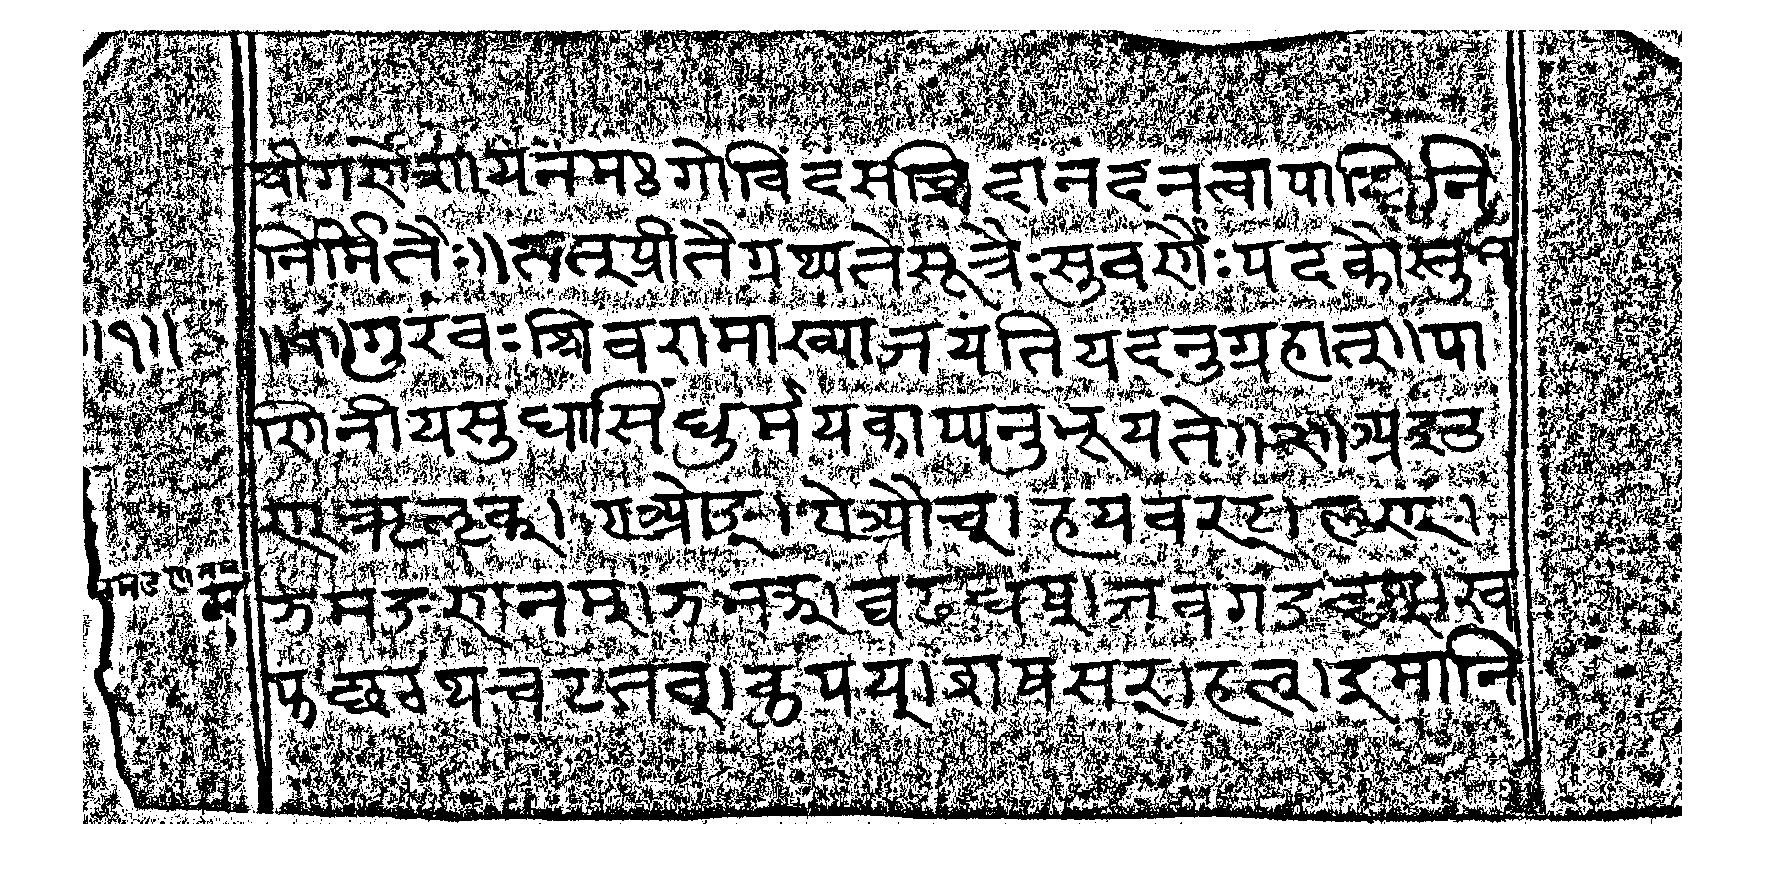 श्रीगणेशायनमः गोविंदंसच्चिदानंदंनत्वापाणिनि
निर्मितैः॥तन्तूयीतैग्रथ्यतेसूत्रैःसुवर्णैःपदकौस्तुभ
॥१॥ ॥१॥गुरवःशिवरामाख्याजयंतियदनुग्रहात्॥पा
णिनीयसुधासिंधुर्मयकाप्यनुभूयते॥२॥अइउ
ण्।ऋऌक्। एओङ्। ऐऔच्। हयवरट्। लण्।
ञमङणनम्।झभञ्।घढधष्।जबगडदश्।ख
फछठथचटतव्।कपय्।शषसर्।हल्।इमानि